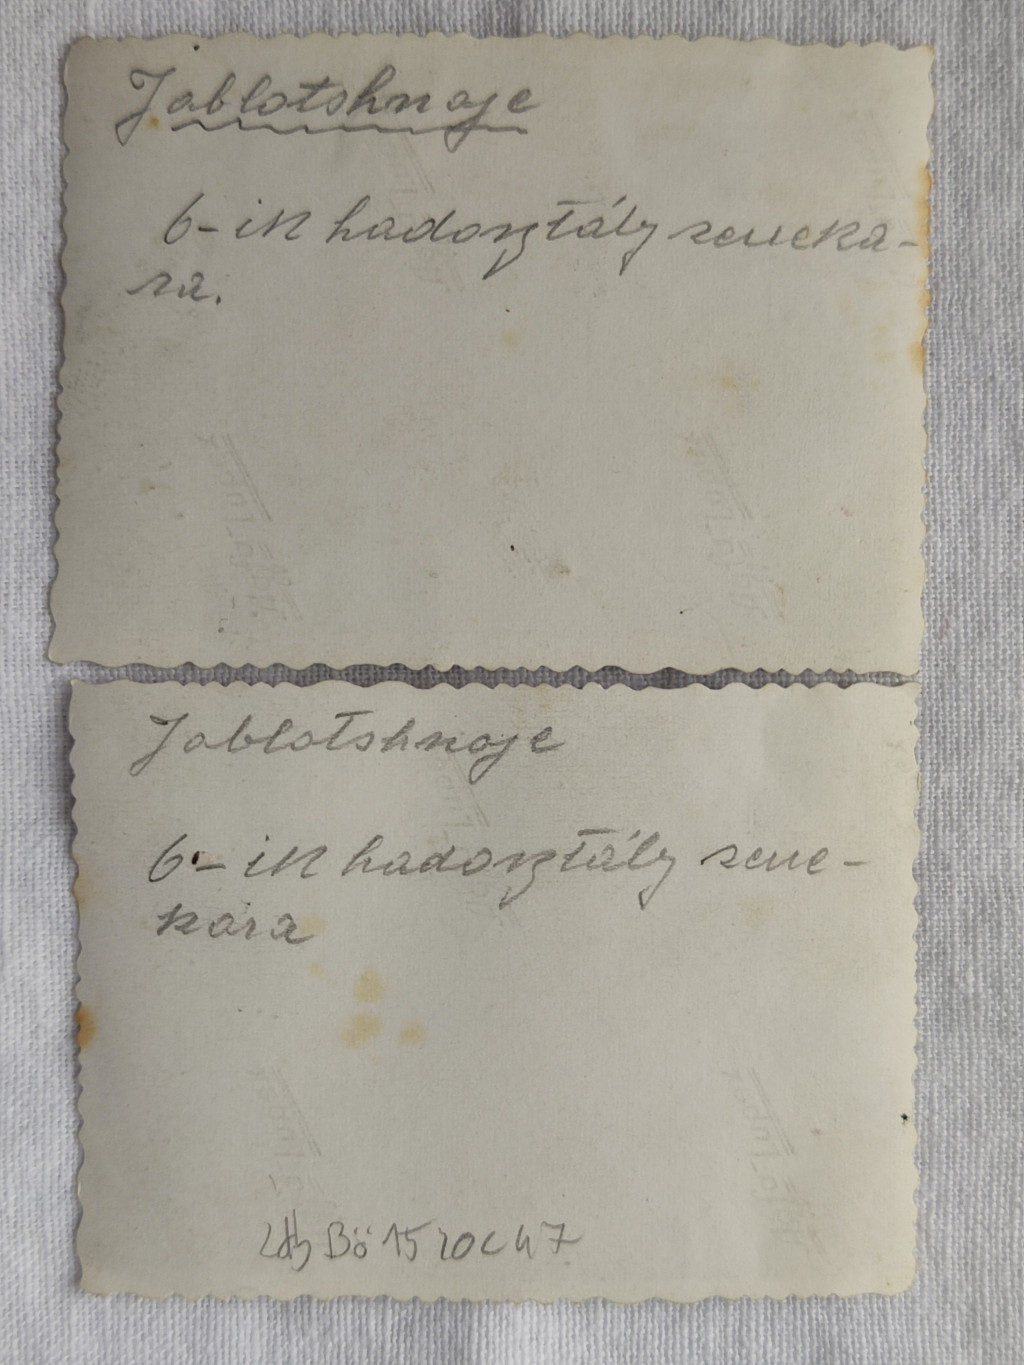 Jablotshnoje
6-ik hadosztály zeneka-
ra.
Jablotshnoje
6-ik hadosztály zene-
kara
Bö 15